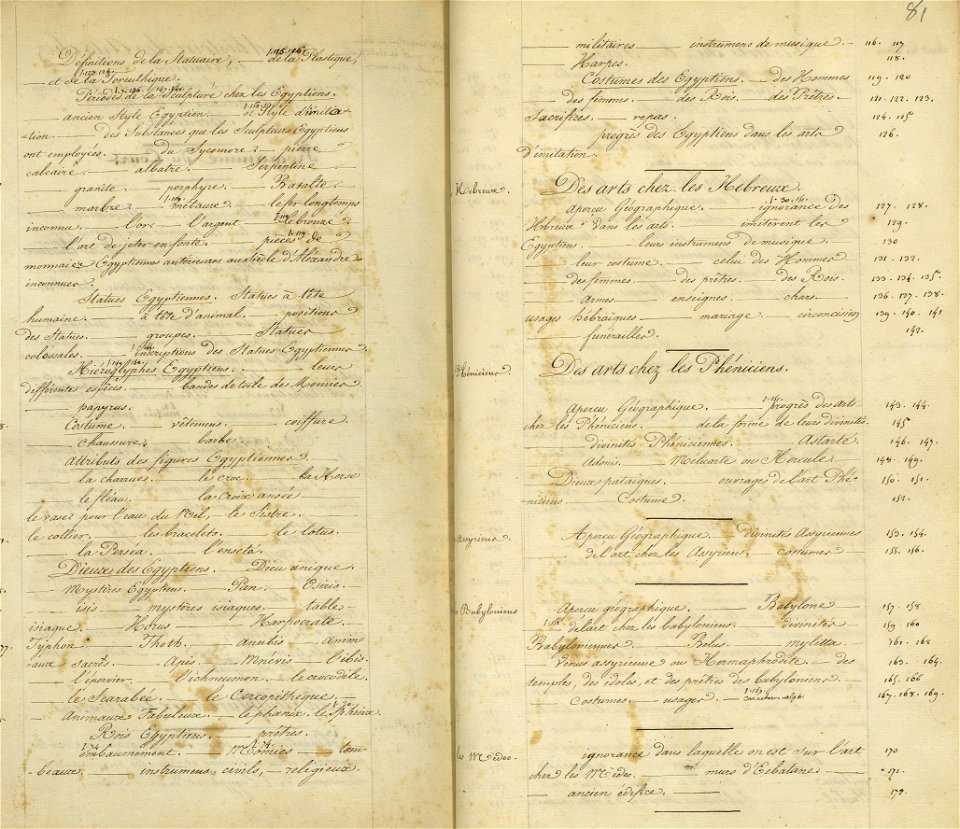 Définitions de la Statuaire, — de la Plastique,
— et de la Toreuthique.
Périodes de la Sculpture chez les Egyptiens.
— ancien Style Egyptien. — et Style d'imita-
-tion — des Substances que les Sculpteurs Egyptiens
ont employées. — du Sycomore — pierre
calcaire — albatre. — Serpentine
— granite — porphyre. — Basalte.
— marbre. — métaux — le fer longtemps
inconnu. — l'or. — l'argent — le bronze
l'art de jeter en fonte. — pièces de
monnaies Egyptiennes antérieures au siècle d'Alexandre
inconnues.
Statues Egyptiennes. Statues à tête
humaine — à tête d'animal. — positions
des Statues. — groupes. — Statues
colossales. — inscriptions des Statues Egyptiennes
Hiéroglyphes Egyptiens. — leurs
différentes espèces. — bandes de toile des Momies
— papyrus.
Costume. — vêtemens. — coiffure
— chaussure. — barbe
attributs des figures Egyptiennes
la charrue. — le croc. — la Herse
le fléau. — la croix ansée
le vase pour l'eau du Nil, — le Sistre.
le collier. — les bracelets. — le lotus.
— la Perséa. —
Dieux des Egyptiens. — Dieu unique.
— Mystères Egyptiens. — Pan. — Osiris.
isis. — mystères isiaques. — table
isiaque. — Horus — Harpocrate.
Typhon. — Thoth. — anubis — anim-
-aux sacrés. — Apis. — Mnévis — l'ibis.
l'épervier — l'ichneumon. — le crocodile.
le Scarabée. — le Cercopithèque. —
— animaux Fabuleux. — le phœnix. le Sphinx
Rois Egyptiens. — prêtres.
embaumement. — Momies — tom-
beaux. — instrumens civils, — religieux.
81
— militaires — instrumens de musique. — 116. 117
— Harpes. 118.
Costumes des Egyptiens. — des Hommes 119. 120
— des femmes. — des Rois. — des Prêtres — 121. 122. 123.
Sacrifices. — repas. 124. 125
progrès des Egyptiens dans les arts 126.
d'imitation.
Hebreux.
Des arts chez les Hebreux.
Aperçu Géographique. — ignorance des 127. 128.
Hébreux dans les arts. — imitèrent les 129.
Egyptiens. — leurs instrumens de musique. 130
— leur costume. — celui des Hommes 131. 132.
— des femmes. — des prêtres. — des Rois. 133. 134. 135.
— armes — enseignes. — chars — 136. 137. 138.
usages hébraiques — mariage — circoncision 139. 140. 141
— funérailles. 142.
Phéniciens
Des arts chez les Phéniciens.
Aperçu Géographique. — progrès des arts 143. 144.
chez les Phéniciens. — de la forme de leurs divinités. 145
— divinités Phéniciennes. — Astarté 146. 147.
Adonis. — Melcarte ou Hercule. 148. 149.
Dieux pataïques. — ouvrages de l'art Phé- 150. 151.
-niciens — Costume. 152.
Assyriens
Aperçu Géographique. — Divinités Assyriennes 153. 154.
— de l'art chez les Assyriens. — costumes 155. 156.
Babyloniens
Aperçu géographique. — Babylone — 157. 158
— de l'art chez les babyloniens. — Divinités 159. 160
Babyloniennes. — Bélus — mylitta 161. 162
Vénus assyrienne ou Hermaphrodite. — des 163. 164.
temples, des idoles, et des prêtres des babyloniens. — 165. 166
— Costumes. — usages. 167. 168. 169.
les Mèdes.
ignorance dans laquelle on est sur l'art 170
chez les Mèdes. — murs d'Ecbatane — 171.
— ancien édifice. — 172.